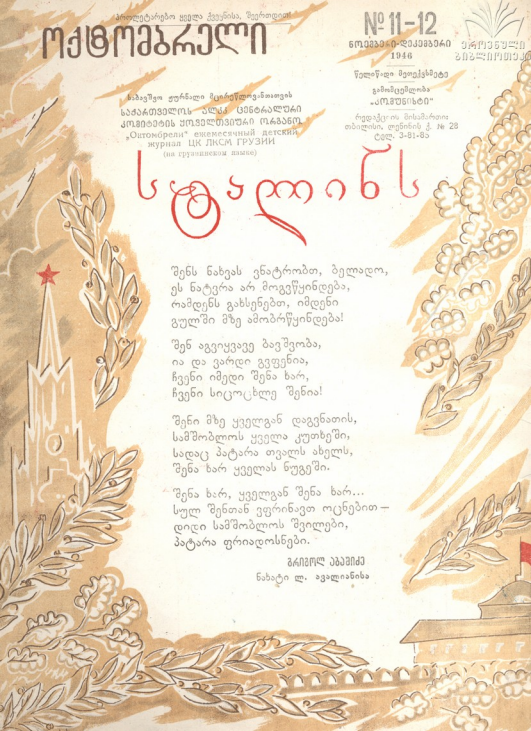 პროლეტარებო ყველა ქვეყნისა, შეერთდით!
ოქტომბრელი
№ 11-12
ნოემბერი-დეკემბერი
1946
წელიწადი მეთექვსმეტე
გამომცემლობა
„კომუნისტი“
რედაქციის მისამართი:
თბილისი, ლენინის ქ. № 28
ტელ. 3-81-85
ეროვნული
ბიბლიოთეკა
საბავშვო ჟურნალი მცირეწლოვანთათვის
საქართველოს ალკკ ცენტრალური
კომიტეტის ყოველთვიური ორგანო
„Октомбрели“ ежемесячный детский
журнал ЦК ЛКСМ ГРУЗИИ
(на грузинском языке)
სტალინს
შენს ნახვას ვნატრობთ, ბელადო,
ეს ნატვრა არ მოგვწყინდება,
რამდენს გახსენებთ, იმდენი
გულში მზე ამობრწყინდება!
შენ აგვიყვავე ბავშვობა,
ია და ვარდი გვფენია,
ჩვენი იმედი შენა ხარ,
ჩვენი სიცოცხლე შენია!
შენი მზე ყველგან დაგვნათის,
სამშობლოს ყველა კუთხეში,
სადაც პატარა თვალს ახელს,
შენა ხარ ყველას ნუგეში.
შენა ხარ, ყველგან შენა ხარ...
სულ შენთან ვფრინავთ ოცნებით —
დიდი სამშობლოს შვილები,
პატარა ფრიადოსნები.
გრიგოლ აბაშიძე
ნახატი ლ. ავალიანისა